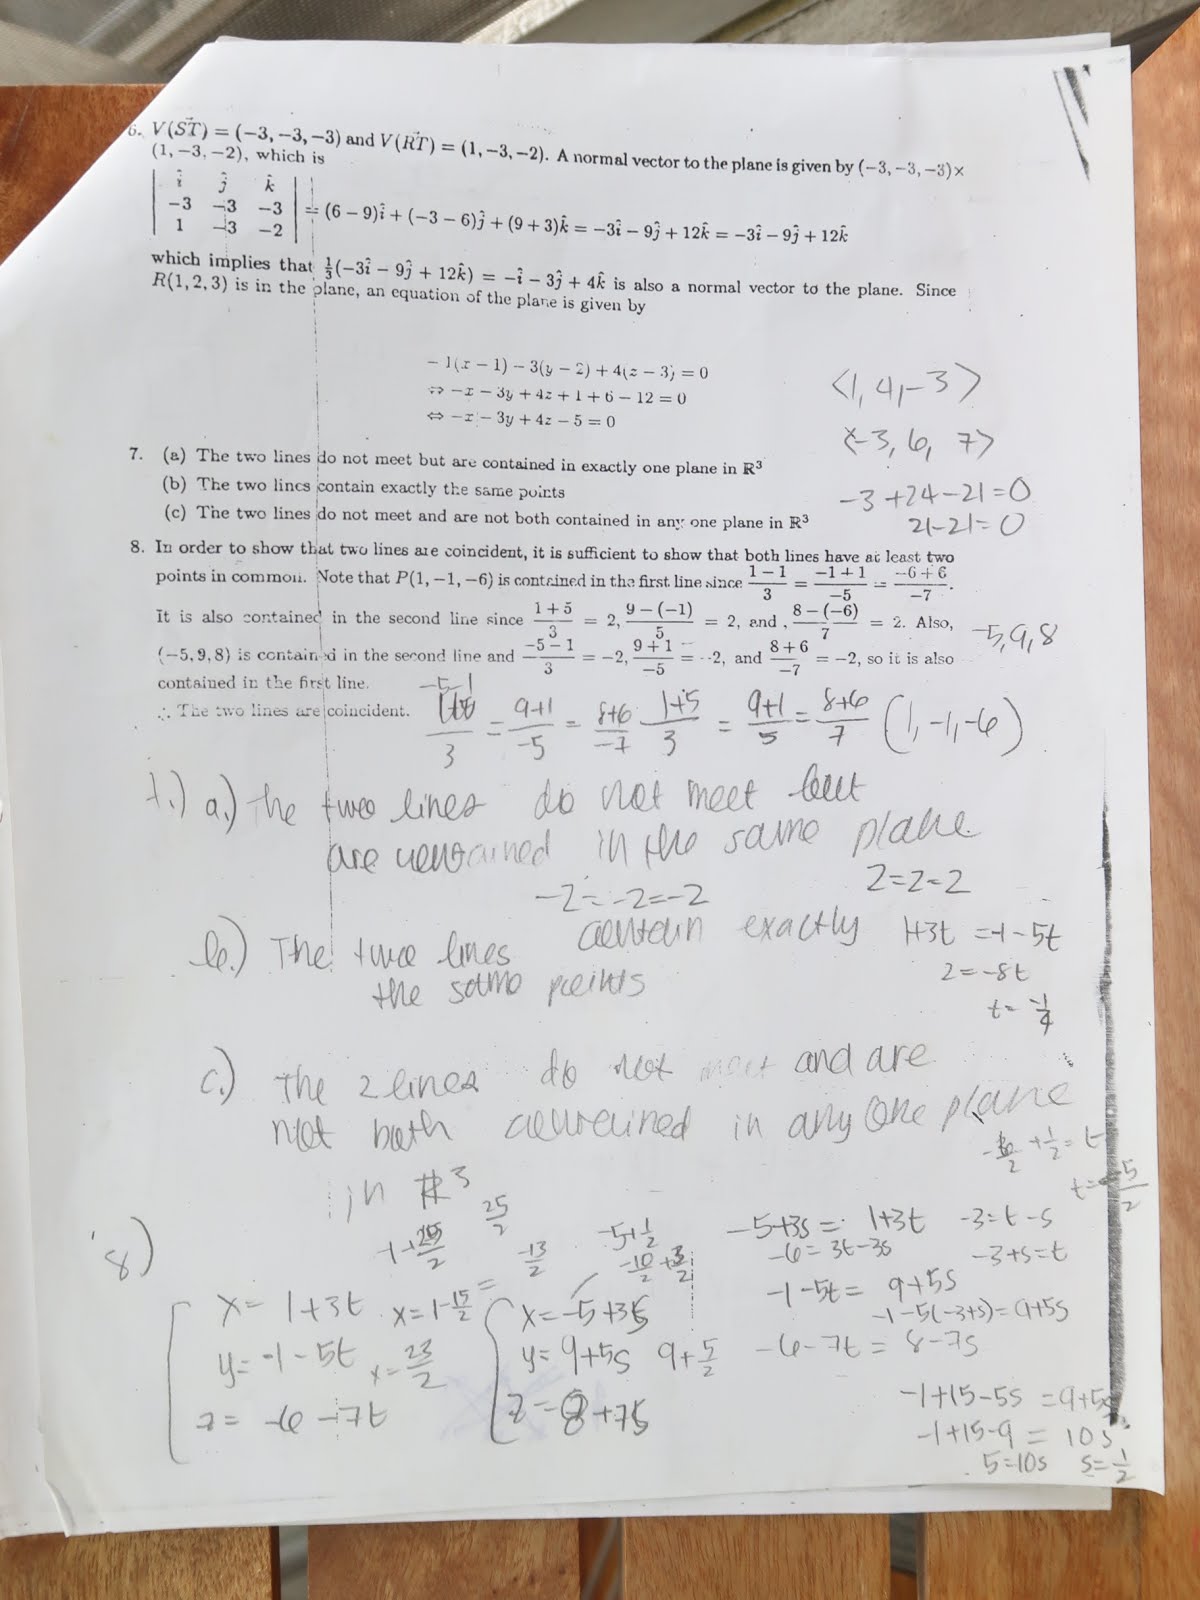 6. V(ST⃗) = (−3, −3, −3) and V(RT⃗) = (1, −3, −2). A normal vector to the plane is given by (−3, −3, −3)×
(1, −3, −2), which is
| î ĵ k̂ |
| −3 −3 −3 | = (6 − 9)î + (−3 − 6)ĵ + (9 + 3)k̂ = −3î − 9ĵ + 12k̂ = −3î − 9ĵ + 12k̂
| 1 −3 −2 |
which implies that 1/3(−3î − 9ĵ + 12k̂) = −î − 3ĵ + 4k̂ is also a normal vector to the plane. Since
R(1, 2, 3) is in the plane, an equation of the plane is given by
− 1(x − 1) − 3(y − 2) + 4(z − 3) = 0
⇔ −x − 3y + 4z + 1 + 6 − 12 = 0
⇔ −x − 3y + 4z − 5 = 0
⟨1, 4, −3⟩
⟨−3, 6, 7⟩
−3 + 24 − 21 = 0
21 − 21 = 0
7. (a) The two lines do not meet but are contained in exactly one plane in R³
(b) The two lines contain exactly the same points
(c) The two lines do not meet and are not both contained in any one plane in R³
8. In order to show that two lines are coincident, it is sufficient to show that both lines have at least two
points in common. Note that P(1, −1, −6) is contained in the first line since (1 − 1)/3 = (−1 + 1)/−5 = (−6 + 6)/−7.
It is also contained in the second line since (1 + 5)/3 = 2, (9 − (−1))/5 = 2, and , (8 − (−6))/7 = 2. Also,
(−5, 9, 8) is contained in the second line and (−5 − 1)/3 = −2, (9 + 1)/−5 = −2, and (8 + 6)/−7 = −2, so it is also
contained in the first line.
∴ The two lines are coincident.
−5, 9, 8
−5−1
/3 = (9+1)/−5 = (8+6)/−7 (1+5)/3 = (9+1)/5 = (8+6)/7 (1, −1, −6)
7.) a.) The two lines do not meet but
are contained in the same plane
−2 = −2 = −2 2 = 2 = 2
b.) The two lines contain exactly
the same points
1+3t = −1−5t
2 = −8t
t = −1/4
c.) The 2 lines do not meet and are
not both contained in any one plane
in R³
+ 1/2 = t
t = −5/2
8)
−1 + 25/2
25/2
−13/2
−5 + 1/2
−10/2 + 3/2
x = 1 + 3t x = 1 − 15/2 =
y = −1 − 5t x = 23/2
z = −6 − 7t
x = −5 + 3s
y = 9 + 5s 9 + 5/2
z = 8 + 7s
−5+3s = 1+3t −3 = t − s
−6 = 3t − 3s −3+s = t
−1−5t = 9+5s
−1−5(−3+s) = 9+5s
−6−7t = 8−7s
−1+15−5s = 9+5s
−1+15−9 = 10s
5 = 10s s = 1/2